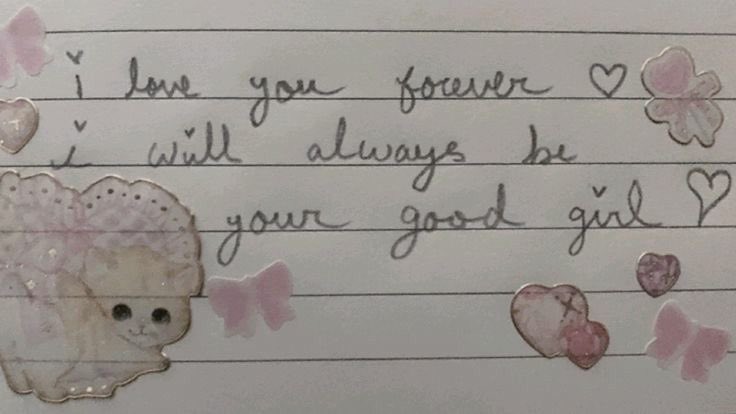 i love you forever ♡
i will always be
your good girl ♡